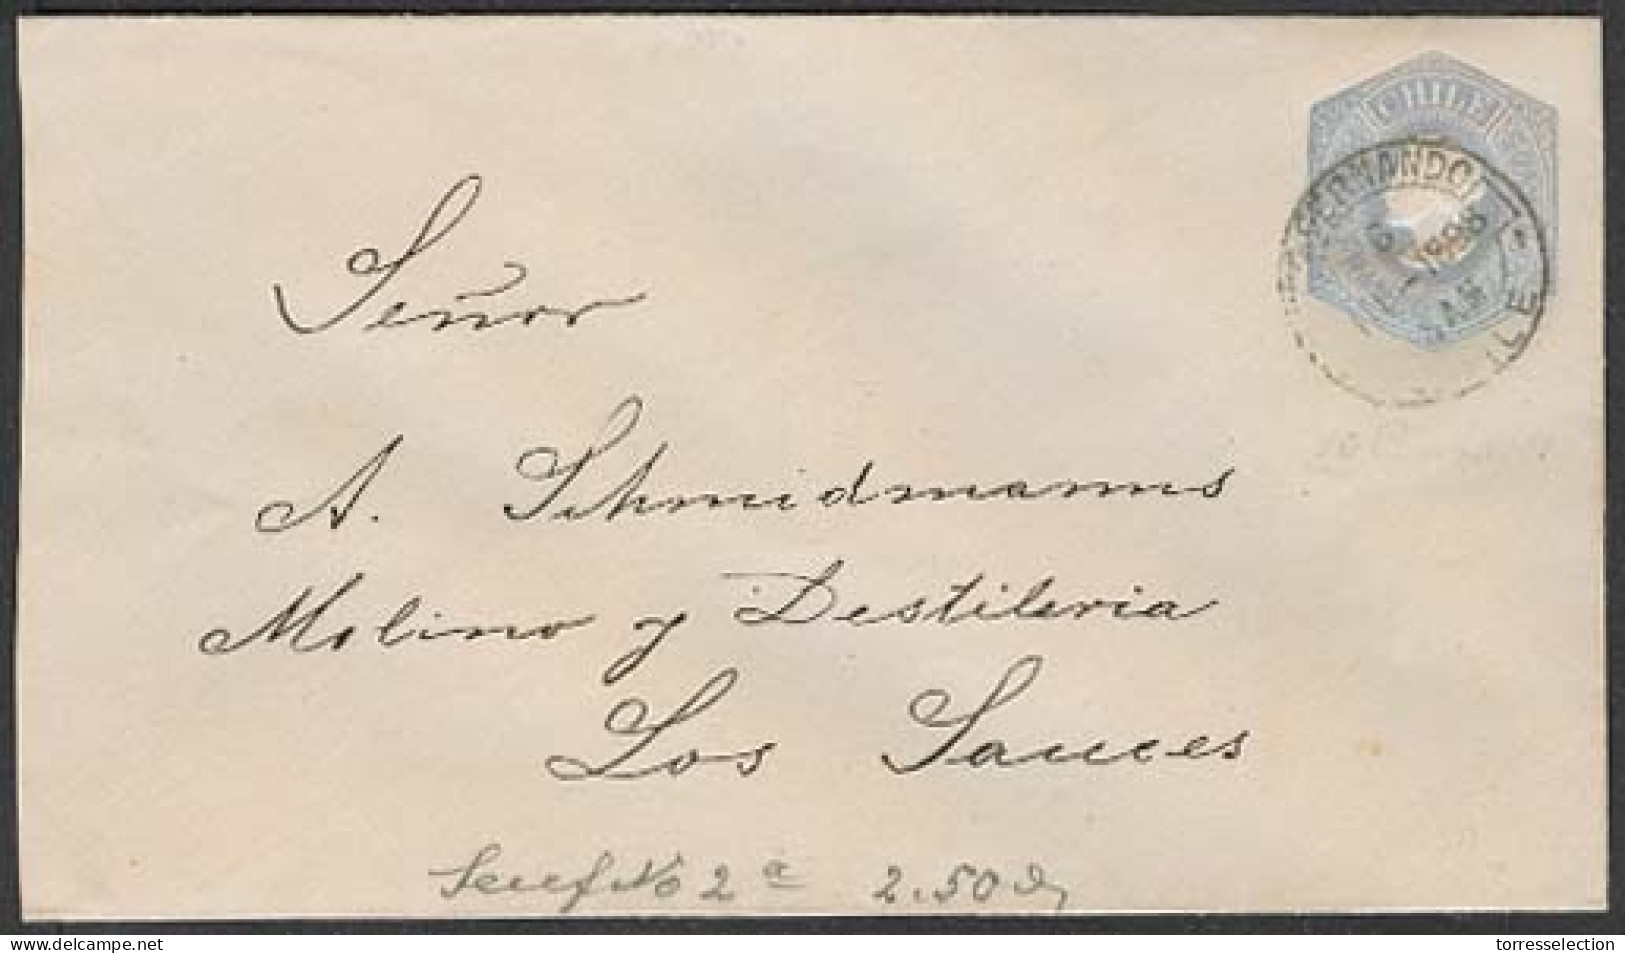 CHILE
FERNANDO
1898
ILE
Señor
A. Schmidmanns
Molino y Destileria
Los Sauces
No 2 a 2.50
delcampe.net
torresselection